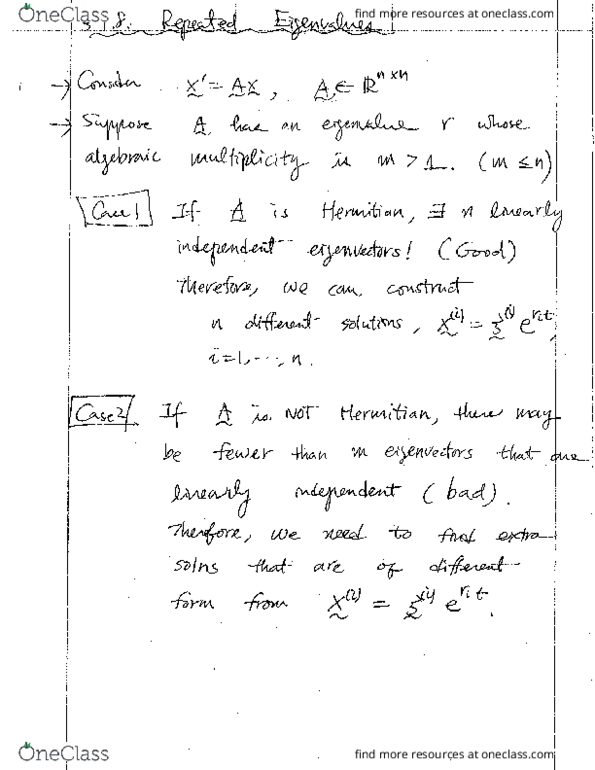 OneClass
find more resources at oneclass.com
§ 7.8. Repeated Eigenvalues
→ Consider x' = Ax, A ∈ ℝⁿˣⁿ
→ Suppose A has an eigenvalue r whose
algebraic multiplicity is m > 1. (m ≤ n)
Case 1 If A is Hermitian, ∃ n linearly
independent eigenvectors! (Good)
Therefore, we can construct
n different solutions, x⁽ⁱ⁾ = ξ⁽ⁱ⁾ e^{rᵢt},
i=1,⋯,n.
Case 2 If A is NOT Hermitian, there may
be fewer than m eigenvectors that are
linearly independent (bad).
Therefore, we need to find extra
solns that are of different
form from x⁽ⁱ⁾ = ξ⁽ⁱ⁾ e^{rᵢt}.
OneClass
find more resources at oneclass.com